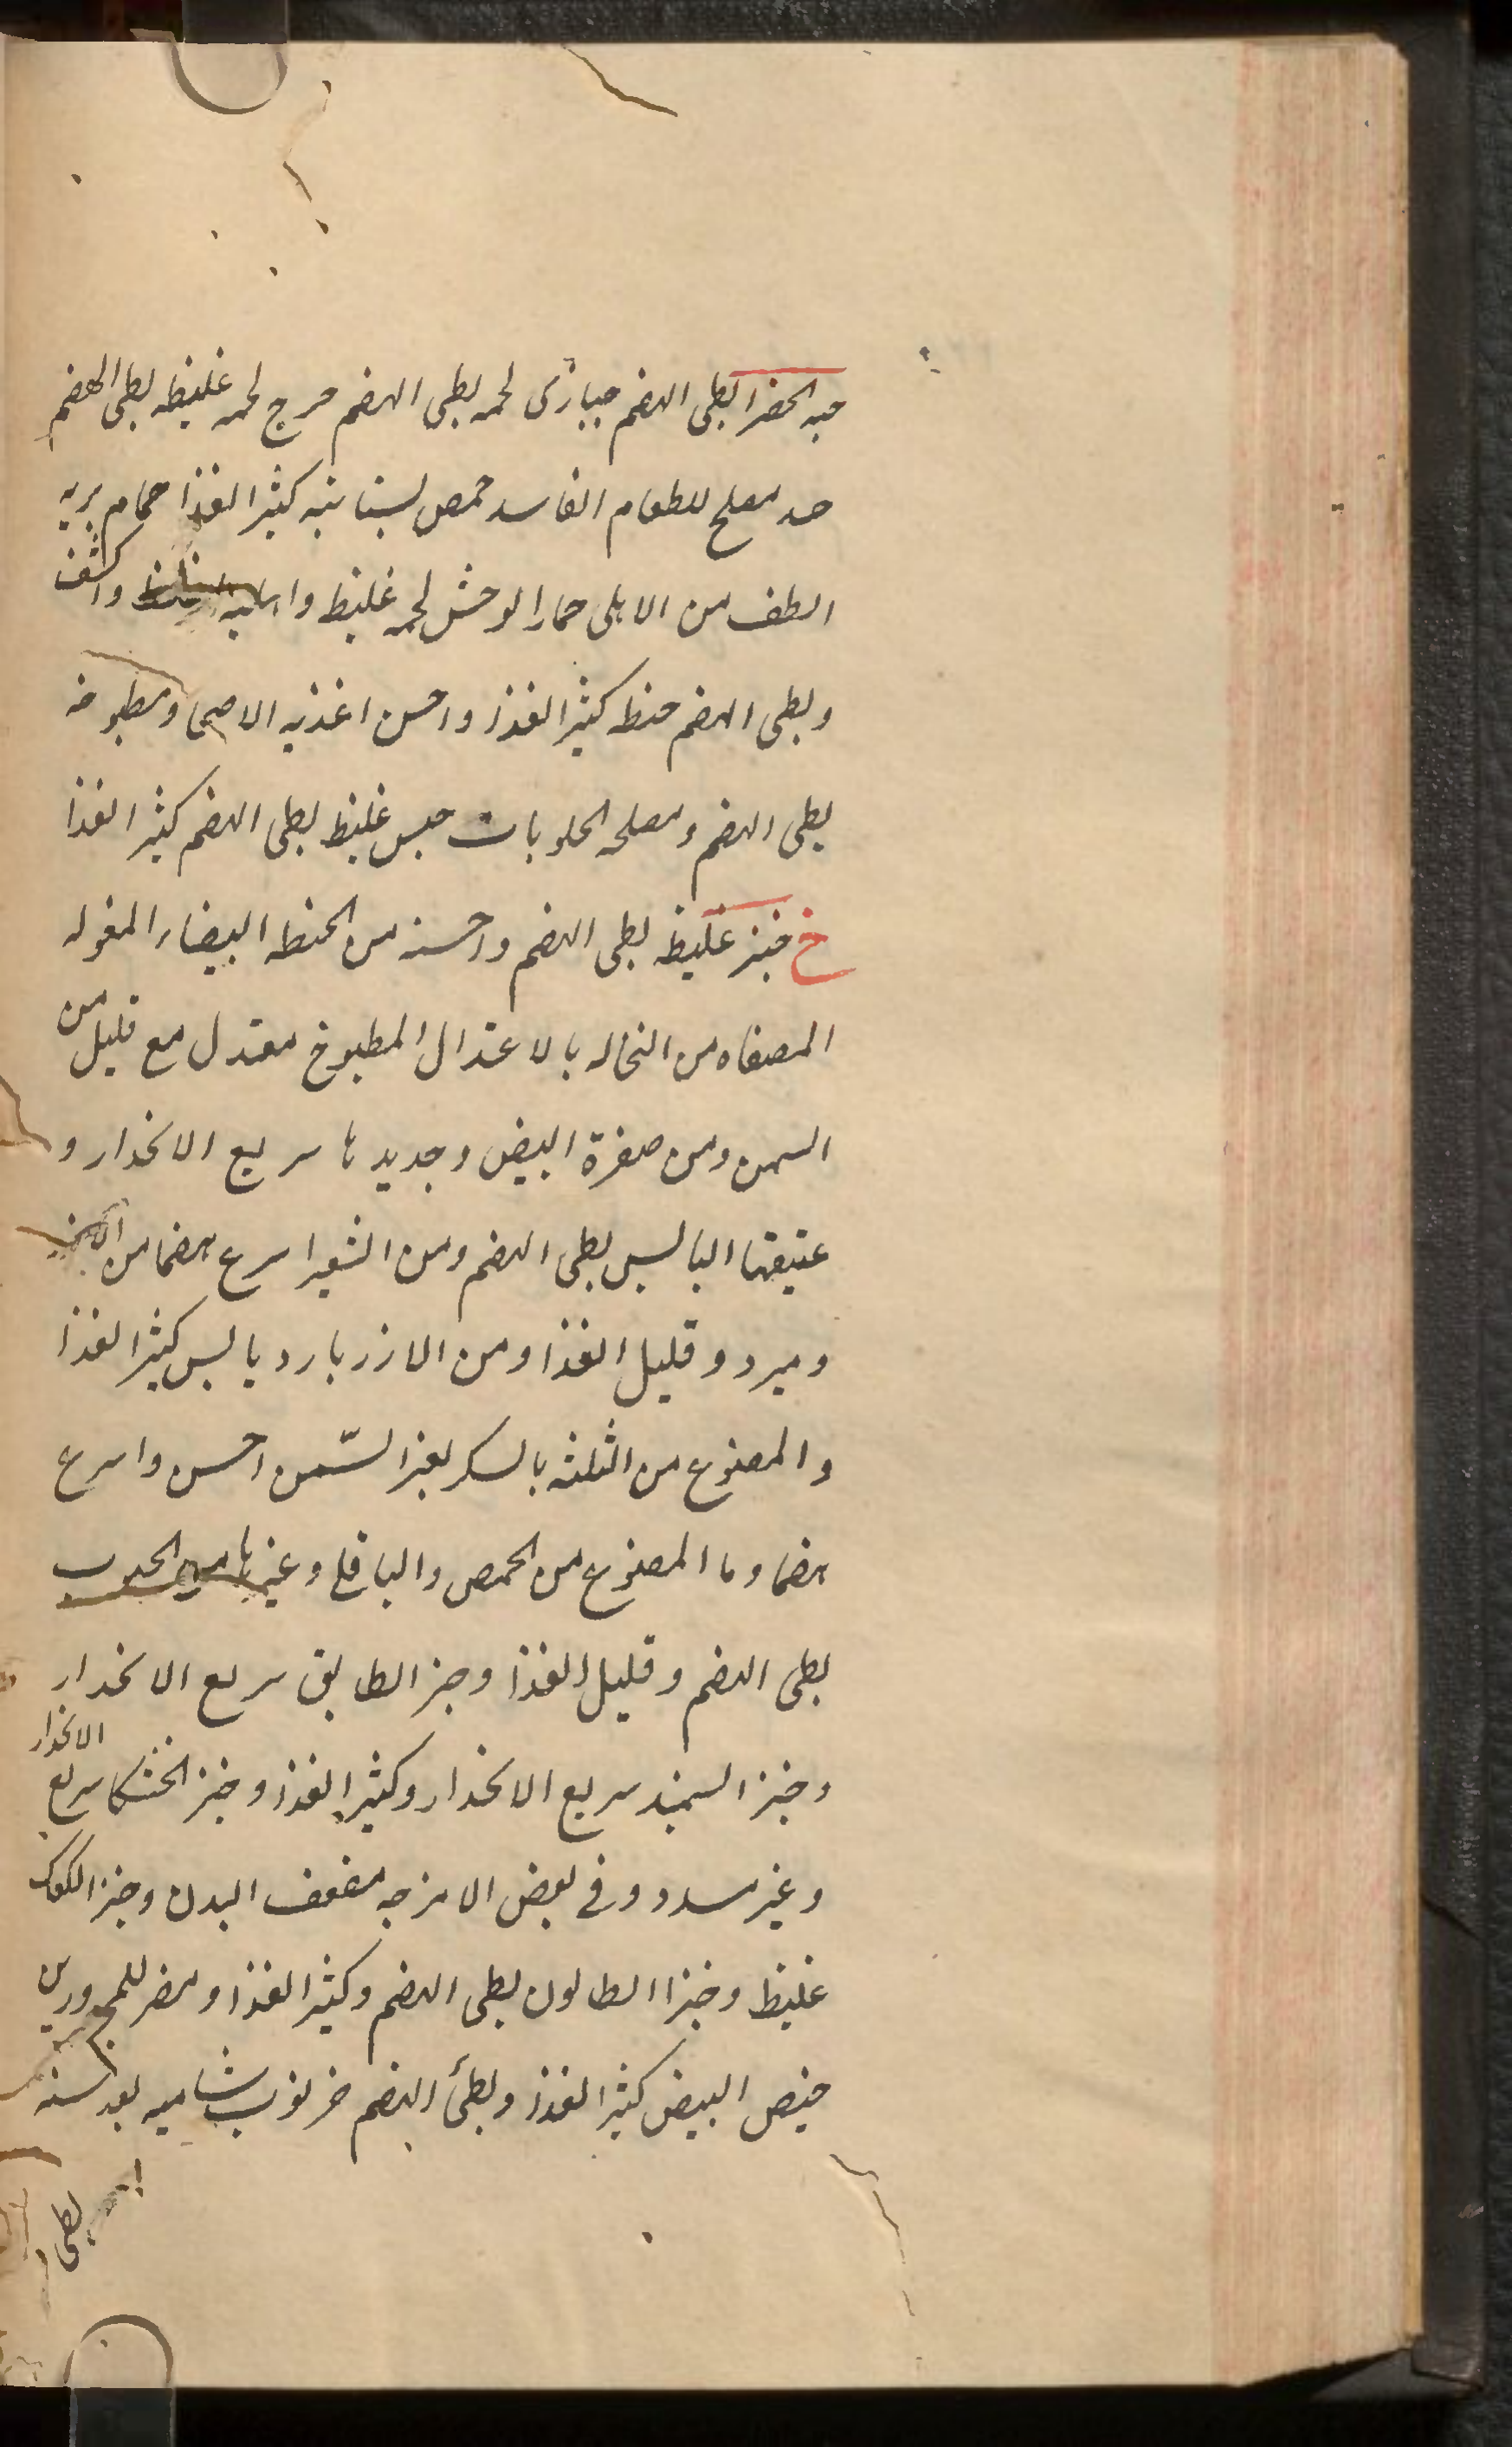 حبه الخضرا بطی الهضم حباری لحمه بطی الهضم درج لحمه غلیظه بطی الهضم
مصلح للطعام الفاسد حمص بستانیه کثیر الغذا حمام بریه
الطف من الاهلی حمار الوحش لحمه غلیظ واکثف
وبطی الهضم حنطه کثیر الغذا واحسن اغذیه الاصحا ومطبوخه
بطی الهضم ومصلحه الحلویات حیس غلیظ بطی الهضم کثیر الغذا
خ خبز غلیظه بطی الهضم واحسنه من الحنطه البیضاء المغسوله
المصفاه من النخاله بالاعتدال المطبوخ معتدل مع قلیل من
السمن ومن صفرة البیض وجدیدها سریع الانحدار و
عتیقها الیابس بطی الهضم ومن الشعیر اسرع هضما من
ومبرد وقلیل الغذا ومن الارز بارد یابس کثیر الغذا
والمصنوع من الثلثه بالسکر بغیر السّمن احسن واسرع
هضما وما المصنوع من الحمص والباقلی وغیرها من الحبوب
بطی الهضم وقلیل الغذا وخبز الطابق سریع الانحدار
وخبز السمید سریع الانحدار وکثیر الغذا وخبز الخشکار سریع الانحدار
وغیر مسدد وفی بعض الامزجه مضعف البدن وخبز الکعک
غلیظ وخبز الطابون بطی الهضم وکثیر الغذا ومضر للمحرورین
خبیص البیض کثیر الغذا وبطئ الهضم خرنوب شامیه
بطی